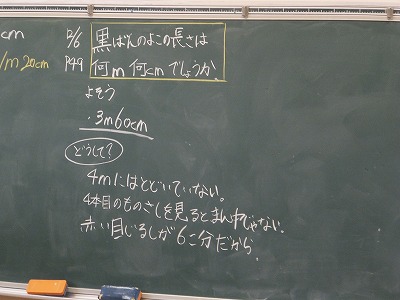 cm
1m20cm
12/6
P49
黒ばんのよこの長さは
何m何cmでしょうか。
よそう
・3m60cm
どうして?
4mにはとどいていない。
4本目のものさしを見るとまんれじゃない。
赤い目じるしが6こ分だから。